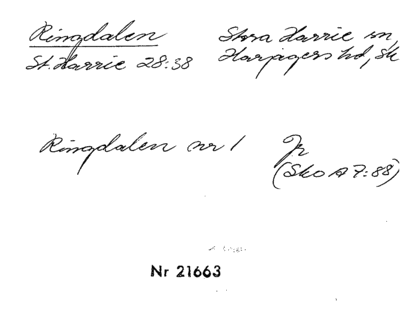 Ringdalen Stora Harrie sn,
St. Harrie 28:38 Harjagers hd, Sk
Ringdalen nr 1 Jr
(Sko A 7:88)
Nr 21663